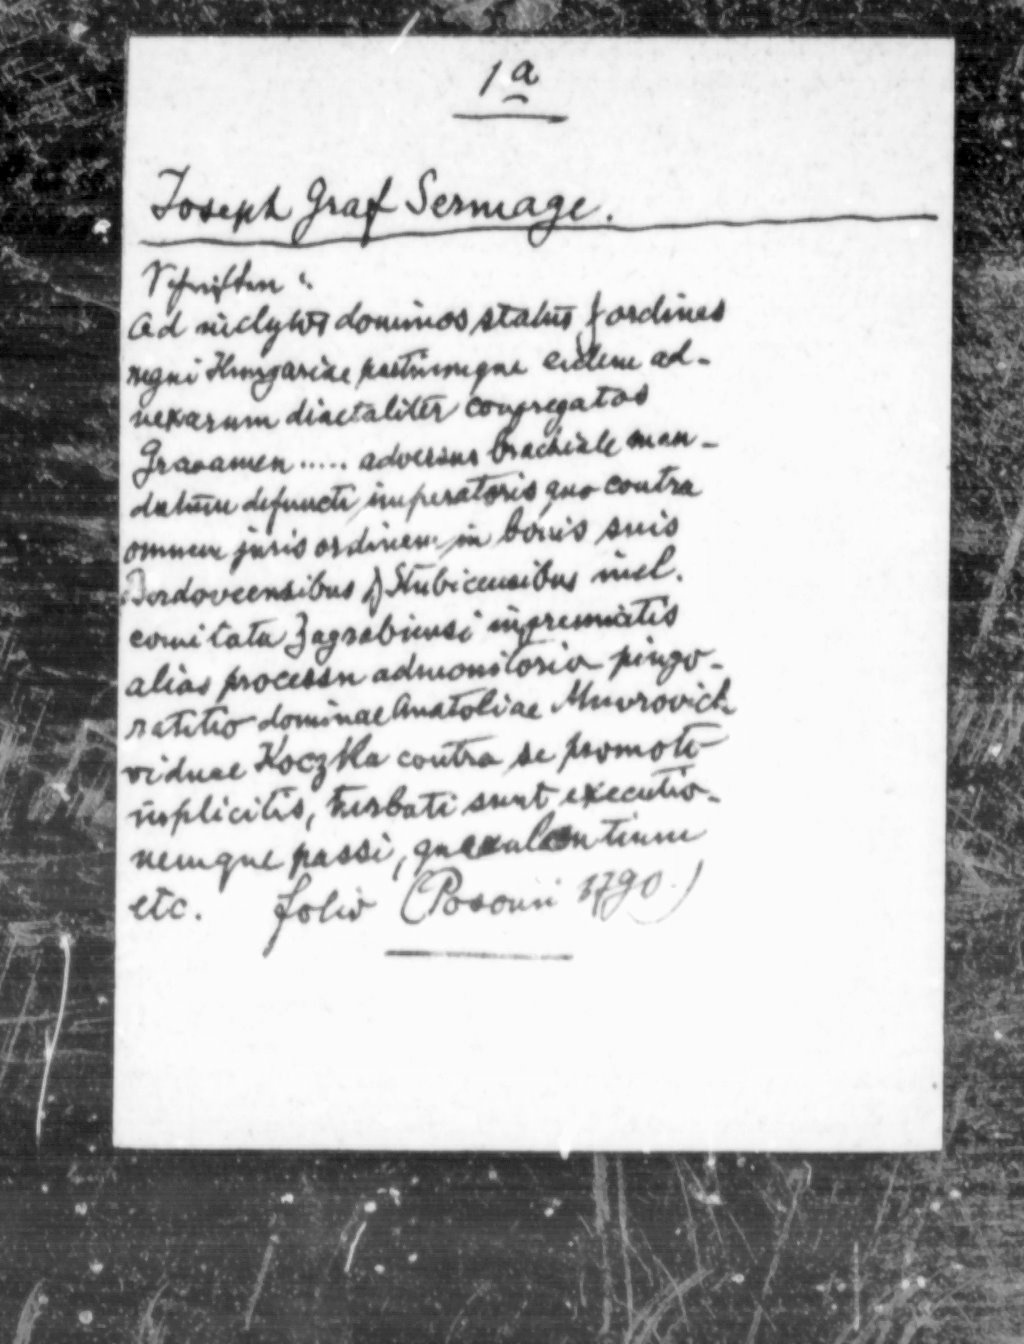 1 a
Joseph Graf Sermage.
Schriften:
Ad inclytos dominos status & ordines
regni Hungariae partiumque eidem ad-
nexarum diaetaliter congregatos
Gravamen ..... adversus brachiale man-
datum defuncti imperatoris, quo contra
omnem juris ordinem in bonis suis
Bordoveensibus & Stubicensibus incl.
comitatu Zagrabiensi
alias processu admonitorio pingo-
ratitio dominae Anatoliae Muvrovich
viduae Koczka contra se promoti
implicitis, turbati sunt executio-
nemque passi,
etc. folio (Posonii 1790.)